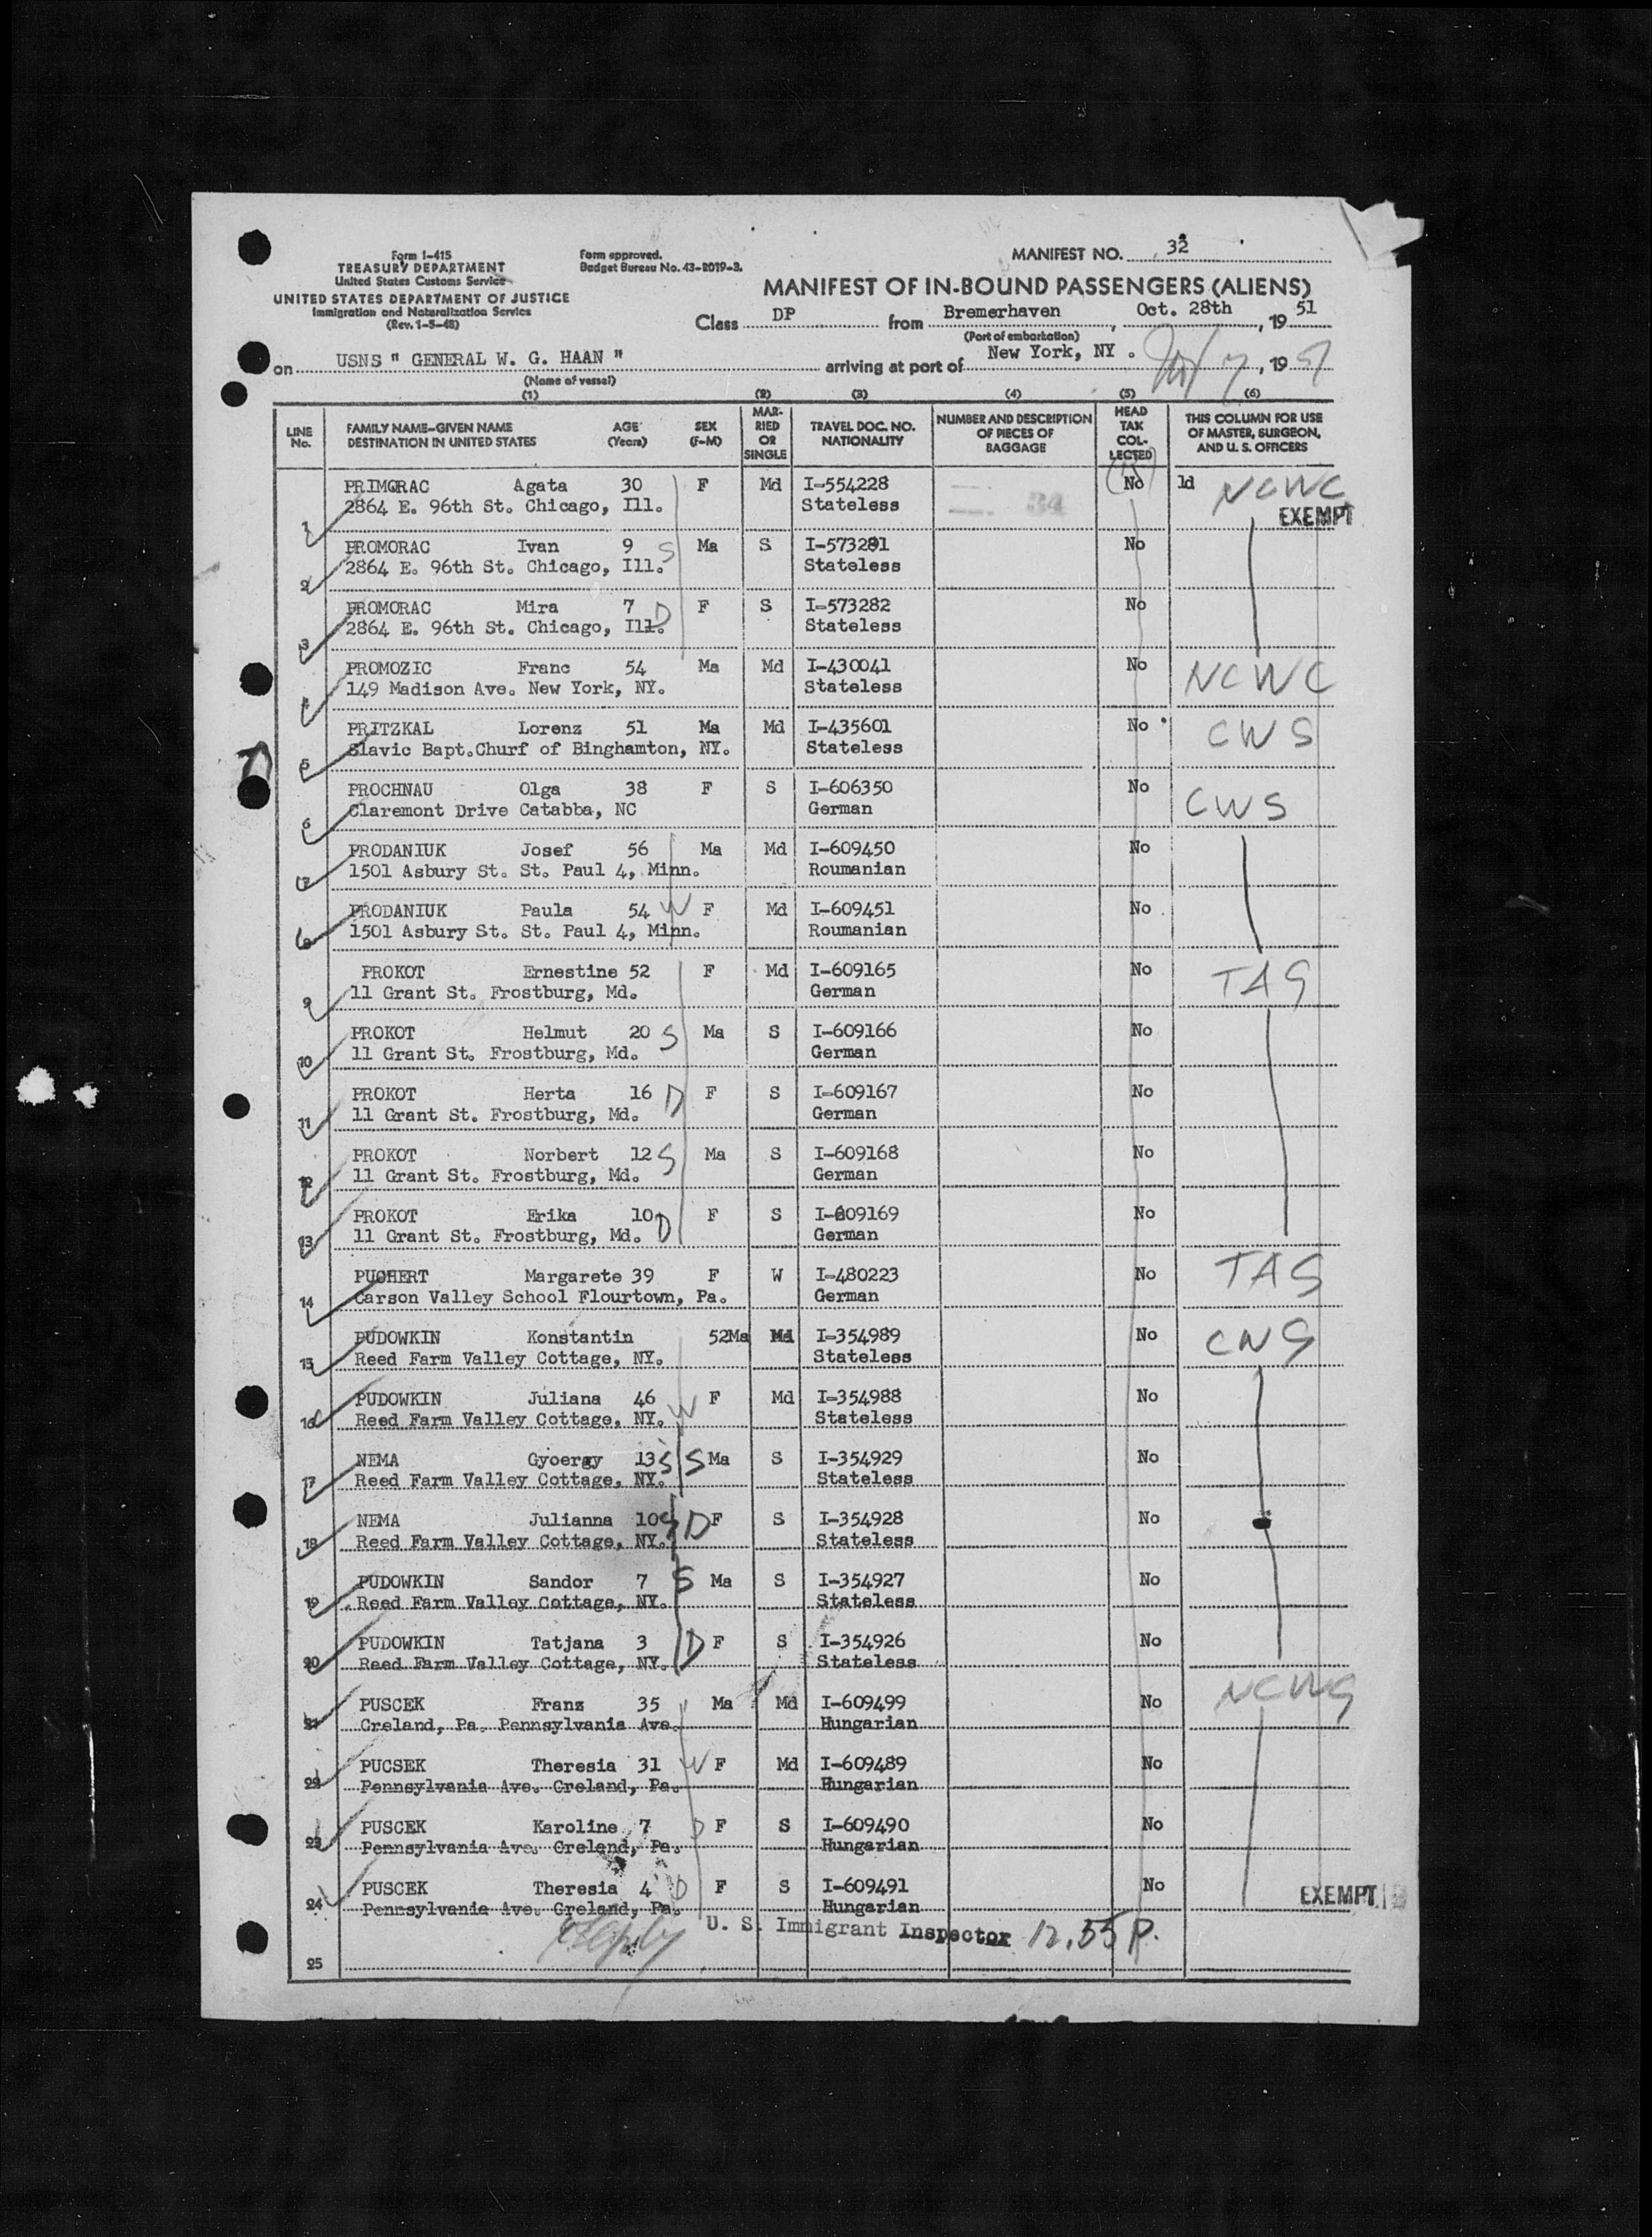 Form I-415
TREASURY DEPARTMENT
United States Customs Service
UNITED STATES DEPARTMENT OF JUSTICE
Immigration and Naturalization Service
(Rev. 1-5-48)
Form approved.
Budget Bureau No. 43-R019-3.
MANIFEST NO. 32
MANIFEST OF IN-BOUND PASSENGERS (ALIENS)
Class DP from Bremerhaven, Oct. 28th, 1951
(Port of embarkation)
on USNS " GENERAL W. G. HAAN " arriving at port of New York, NY. 7, 1951
(Name of vessel)
(1) (2) (3) (4) (5) (6)
LINE No. FAMILY NAME-GIVEN NAME DESTINATION IN UNITED STATES AGE (Years) SEX (F-M) MARRIED OR SINGLE TRAVEL DOC. NO. NATIONALITY NUMBER AND DESCRIPTION OF PIECES OF BAGGAGE HEAD TAX COLLECTED THIS COLUMN FOR USE OF MASTER, SURGEON, AND U. S. OFFICERS
PRIMORAC Agata 30 F Md I-554228 34 No 1d NCWC
1 2864 E. 96th St. Chicago, Ill. Stateless EXEMPT
PROMORAC Ivan 9 S Ma S I-573281 No
2 2864 E. 96th St. Chicago, Ill. Stateless
PROMORAC Mira 7 D F S I-573282 No
3 2864 E. 96th St. Chicago, Ill. Stateless
PROMOZIC Franc 54 Ma Md I-430041 No NCWC
4 149 Madison Ave. New York, NY. Stateless
PRITZKAL Lorenz 51 Ma Md I-435601 No CWS
5 Slavic Bapt.Churf of Binghamton, NY. Stateless
PROCHNAU Olga 38 F S I-606350 No CWS
6 Claremont Drive Catabba, NC German
PRODANIUK Josef 56 Ma Md I-609450 No
7 1501 Asbury St. St. Paul 4, Minn. Roumanian
PRODANIUK Paula 54 W F Md I-609451 No
8 1501 Asbury St. St. Paul 4, Minn. Roumanian
PROKOT Ernestine 52 F Md I-609165 No TAS
9 11 Grant St. Frostburg, Md. German
PROKOT Helmut 20 S Ma S I-609166 No
10 11 Grant St. Frostburg, Md. German
PROKOT Herta 16 D F S I-609167 No
11 11 Grant St. Frostburg, Md. German
PROKOT Norbert 12 S Ma S I-609168 No
12 11 Grant St. Frostburg, Md. German
PROKOT Erika 10 D F S I-609169 No
13 11 Grant St. Frostburg, Md. German
PUCHERT Margarete 39 F W I-480223 No TAS
14 Carson Valley School Flourtown, Pa. German
PUDOWKIN Konstantin 52 Ma Md I-354989 No CWS
15 Reed Farm Valley Cottage, NY. Stateless
PUDOWKIN Juliana 46 W F Md I-354988 No
16 Reed Farm Valley Cottage, NY. Stateless
NEMA Gyoergy 13 S S Ma S I-354929 No
17 Reed Farm Valley Cottage, NY. Stateless
NEMA Julianna 10 D F S I-354928 No
18 Reed Farm Valley Cottage, NY. Stateless
PUDOWKIN Sandor 7 S Ma S I-354927 No
19 Reed Farm Valley Cottage, NY. Stateless
PUDOWKIN Tatjana 3 D F S I-354926 No
20 Reed Farm Valley Cottage, NY. Stateless
PUSCEK Franz 35 Ma Md I-609499 No NCWC
21 Creland, Pa. Pennsylvania Ave. Hungarian
PUCSEK Theresia 31 W F Md I-609489 No
22 Pennsylvania Ave. Creland, Pa. Hungarian
PUSCEK Karoline 7 D F S I-609490 No
23 Pennsylvania Ave. Creland, Pa. Hungarian
PUSCEK Theresia 4 D F S I-609491 No EXEMPT
24 Pennsylvania Ave. Creland, Pa. Hungarian
U. S. Immigrant Inspector 12.55 P.
25